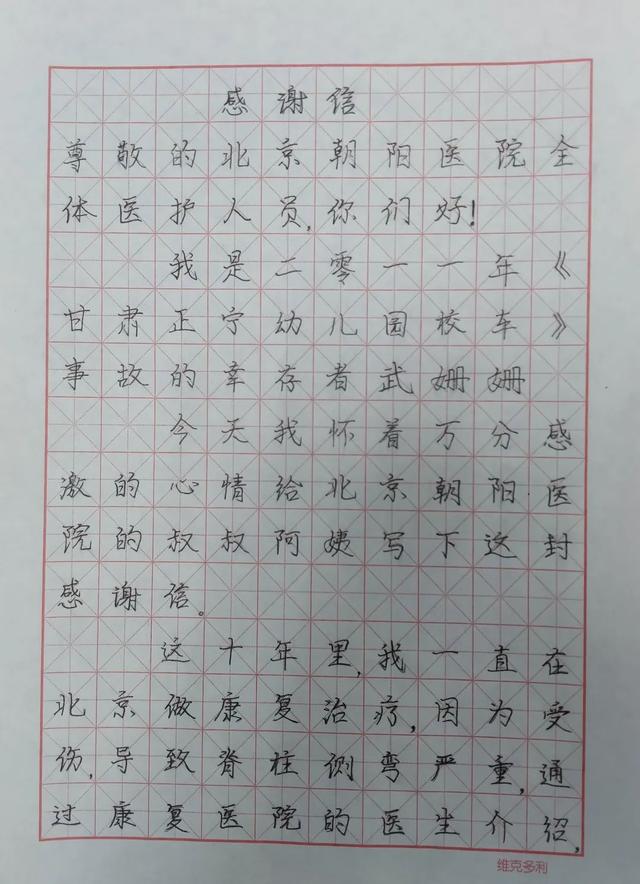 感谢信
尊敬的北京朝阳医院全
体医护人员,你们好!
我是二零一一年《
甘肃正宁幼儿园校车》
事故的幸存者武姗姗
今天我怀着万分感
激的心情给北京朝阳医
院的叔叔阿姨写下这封
感谢信。
这十年里,我一直在
北京做康复治疗,因为受
伤,导致脊柱侧弯严重,通
过康复医院的医生介绍,
维克多利